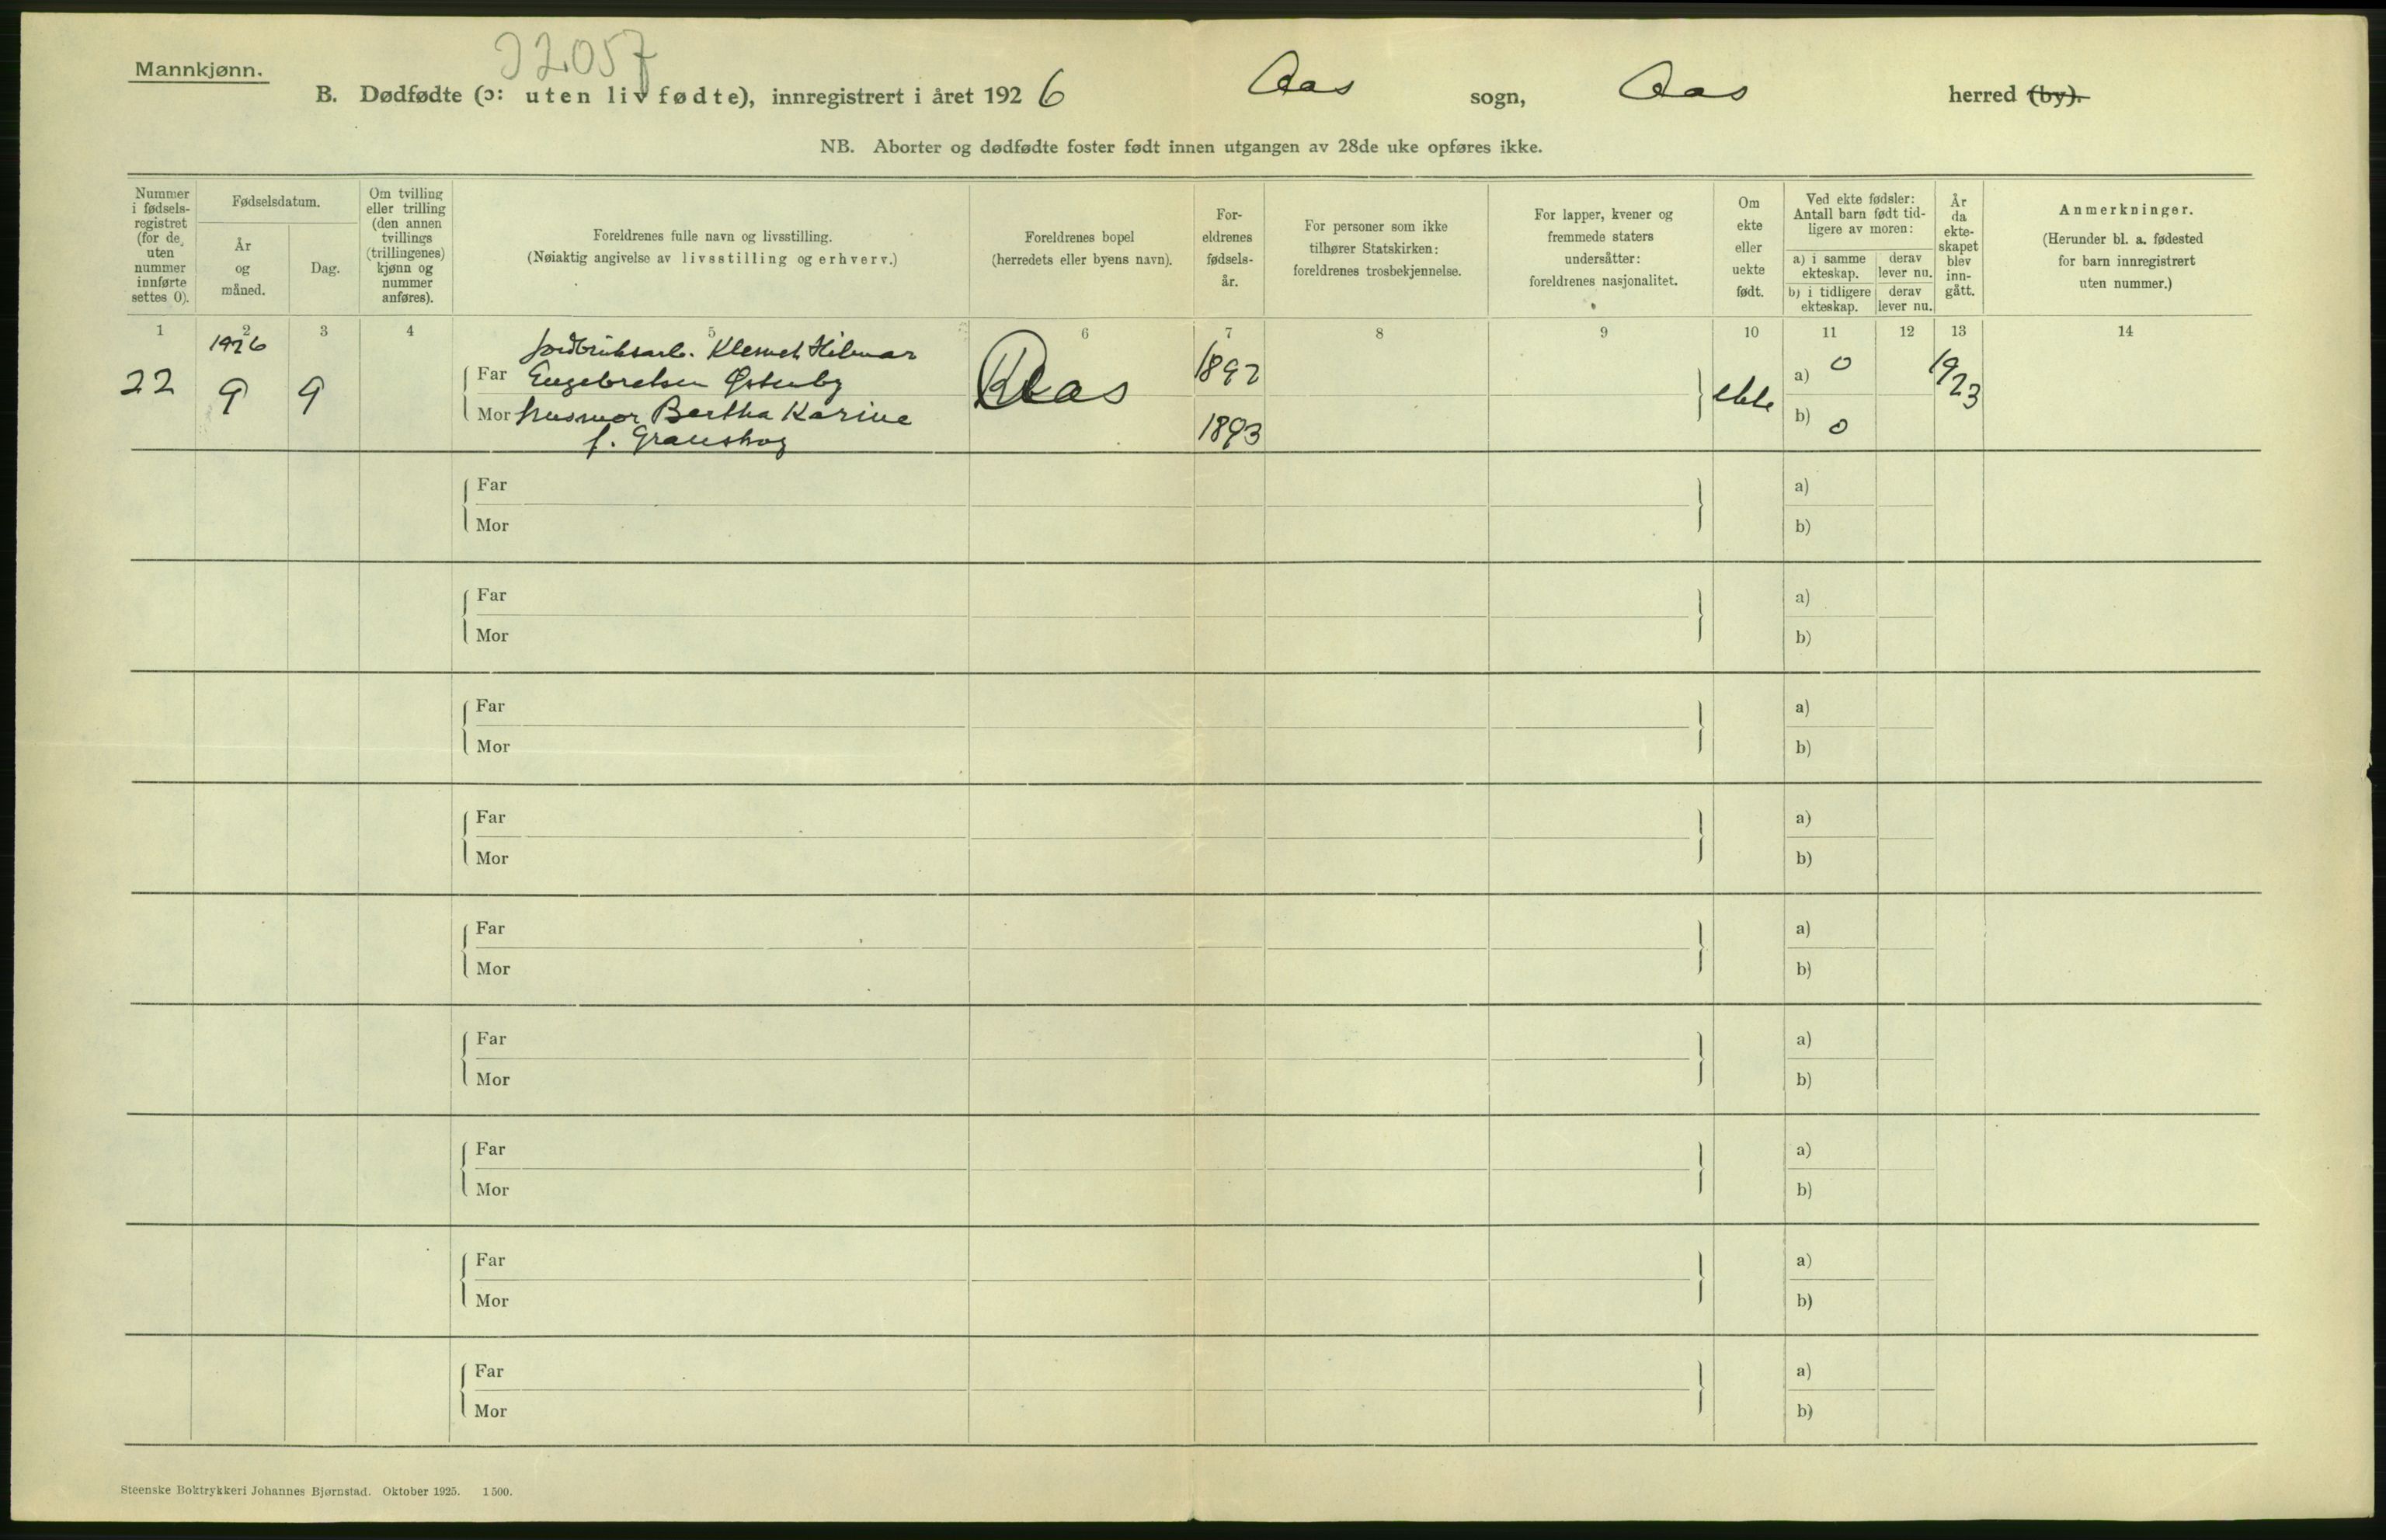 22057
Mannkjønn.
B. Dødfødte (ɔ: uten liv fødte), innregistrert i året 1926 Aas sogn, Aas herred (by).
NB. Aborter og dødfødte foster født innen utgangen av 28de uke opføres ikke.
Nummer i fødselsregistret (for de uten nummer innførte settes 0).
Fødselsdatum.
År og måned.
Dag.
Om tvilling eller trilling (den annen tvillings (trillingenes) kjønn og nummer anføres).
Foreldrenes fulle navn og livsstilling.
(Nøiaktig angivelse av livsstilling og erhverv.)
Foreldrenes bopel
(herredets eller byens navn).
Foreldrenes fødselsår.
For personer som ikke tilhører Statskirken: foreldrenes trosbekjennelse.
For lapper, kvener og fremmede staters undersåtter: foreldrenes nasjonalitet.
Om ekte eller uekte født.
Ved ekte fødsler: Antall barn født tidligere av moren:
a) i samme ekteskap.
derav lever nu.
b) i tidligere ekteskap.
derav lever nu.
År da ekteskapet blev inngått.
Anmerkninger.
(Herunder bl. a. fødested for barn innregistrert uten nummer.)
1 2 3 4 5 6 7 8 9 10 11 12 13 14
1926
22 9 9
Hilmar
Far Engebretsen Østenby
Mor husmor Bertha Karine
f.
Aas
1892
1893
ekte
a) 0
b) 0
1923
Far a)
Mor b)
Far a)
Mor b)
Far a)
Mor b)
Far a)
Mor b)
Far a)
Mor b)
Far a)
Mor b)
Far a)
Mor b)
Far a)
Mor b)
Far a)
Mor b)
Steenske Boktrykkeri Johannes Bjørnstad. Oktober 1925. 1500.